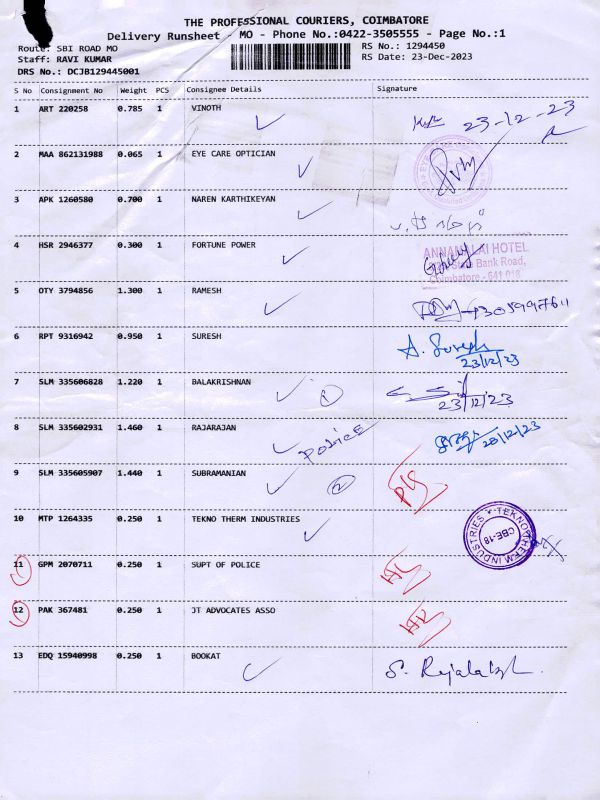 THE PROFESSIONAL COURIERS, COIMBATORE
Delivery Runsheet - MO - Phone No.:0422-3505555 - Page No.:1
Route: SBI ROAD MO
RS No.: 1294450
Staff: RAVI KUMAR
RS Date: 23-Dec-2023
DRS No.: DCJB129445001
S No Consignment No Weight PCS Consignee Details Signature
1 ART 220258 0.785 1 VINOTH
23-12-23
2 MAA 862131988 0.065 1 EYE CARE OPTICIAN
3 APK 1260580 0.700 1 NAREN KARTHIKEYAN
4 HSR 2946377 0.300 1 FORTUNE POWER
ANNAMALAI HOTEL
State Bank Road,
Coimbatore - 641 018
5 OTY 3794856 1.300 1 RAMESH
6 RPT 9316942 0.950 1 SURESH
A. Suresh
23/12/23
7 SLM 335606828 1.220 1 BALAKRISHNAN
1
23/12/23
8 SLM 335602931 1.460 1 RAJARAJAN
police
9 SLM 335605907 1.440 1 SUBRAMANIAN
2
10 MTP 1264335 0.250 1 TEKNO THERM INDUSTRIES
TEKNO THERM INDUSTRIES
CBE-18
11 GPM 2070711 0.250 1 SUPT OF POLICE
12 PAK 367481 0.250 1 JT ADVOCATES ASSO
13 EDQ 15940998 0.250 1 BOOKAT